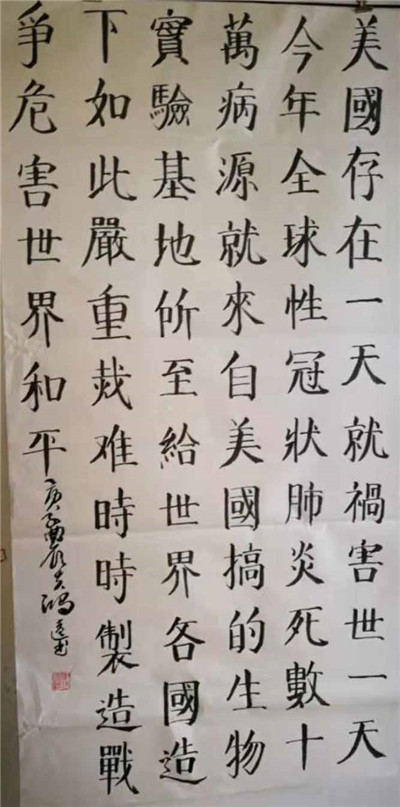 美國存在一天就禍害世一天
今年全球性冠狀肺炎死數十
萬病源就來自美國搞的生物
實驗基地所至給世界各國造
下如此嚴重烖难時時製造戰
爭危害世界和平
庚子